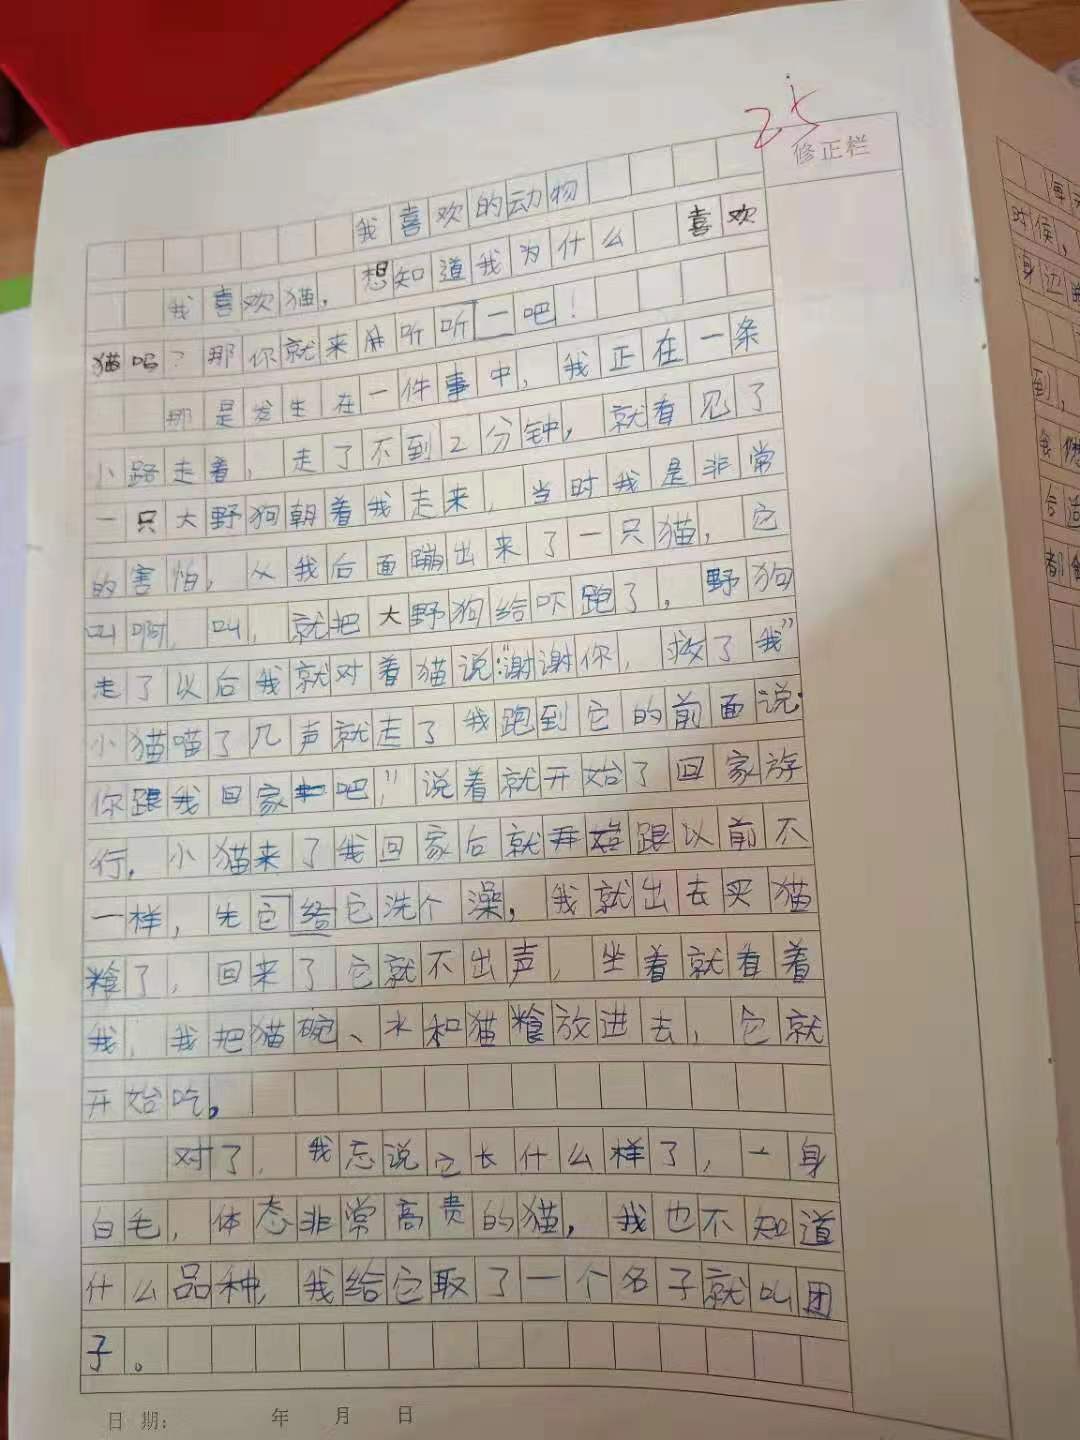 25
修正栏
我喜欢的动物
我喜欢猫，想知道我为什么喜欢
猫吗？那你就来听听一吧！
那是发生在一件事中，我正在一条
小路走着，走了不到2分钟，就看见了
一只大野狗朝着我走来，当时我是非常
的害怕，从我后面蹦出来了一只猫，它
叫啊，叫，就把大野狗给吓跑了，野狗
走了以后我就对着猫说:“谢谢你，救了我”
小猫喵了几声就走了我跑到它的前面说:
你跟我回家吧，”说着就开始了回家旅
行，小猫来了我回家后就开始跟以前不
一样，先它给它洗个澡，我就出去买猫
粮了，回来了它就不出声，坐着就看着
我，我把猫碗、水和猫粮放进去，它就
开始吃。
对了，我忘说它长什么样了，一身
白毛，体态非常高贵的猫，我也不知道
什么品种，我给它取了一个名子就叫团
子。
日期: 年 月 日
时候，
身边
到，